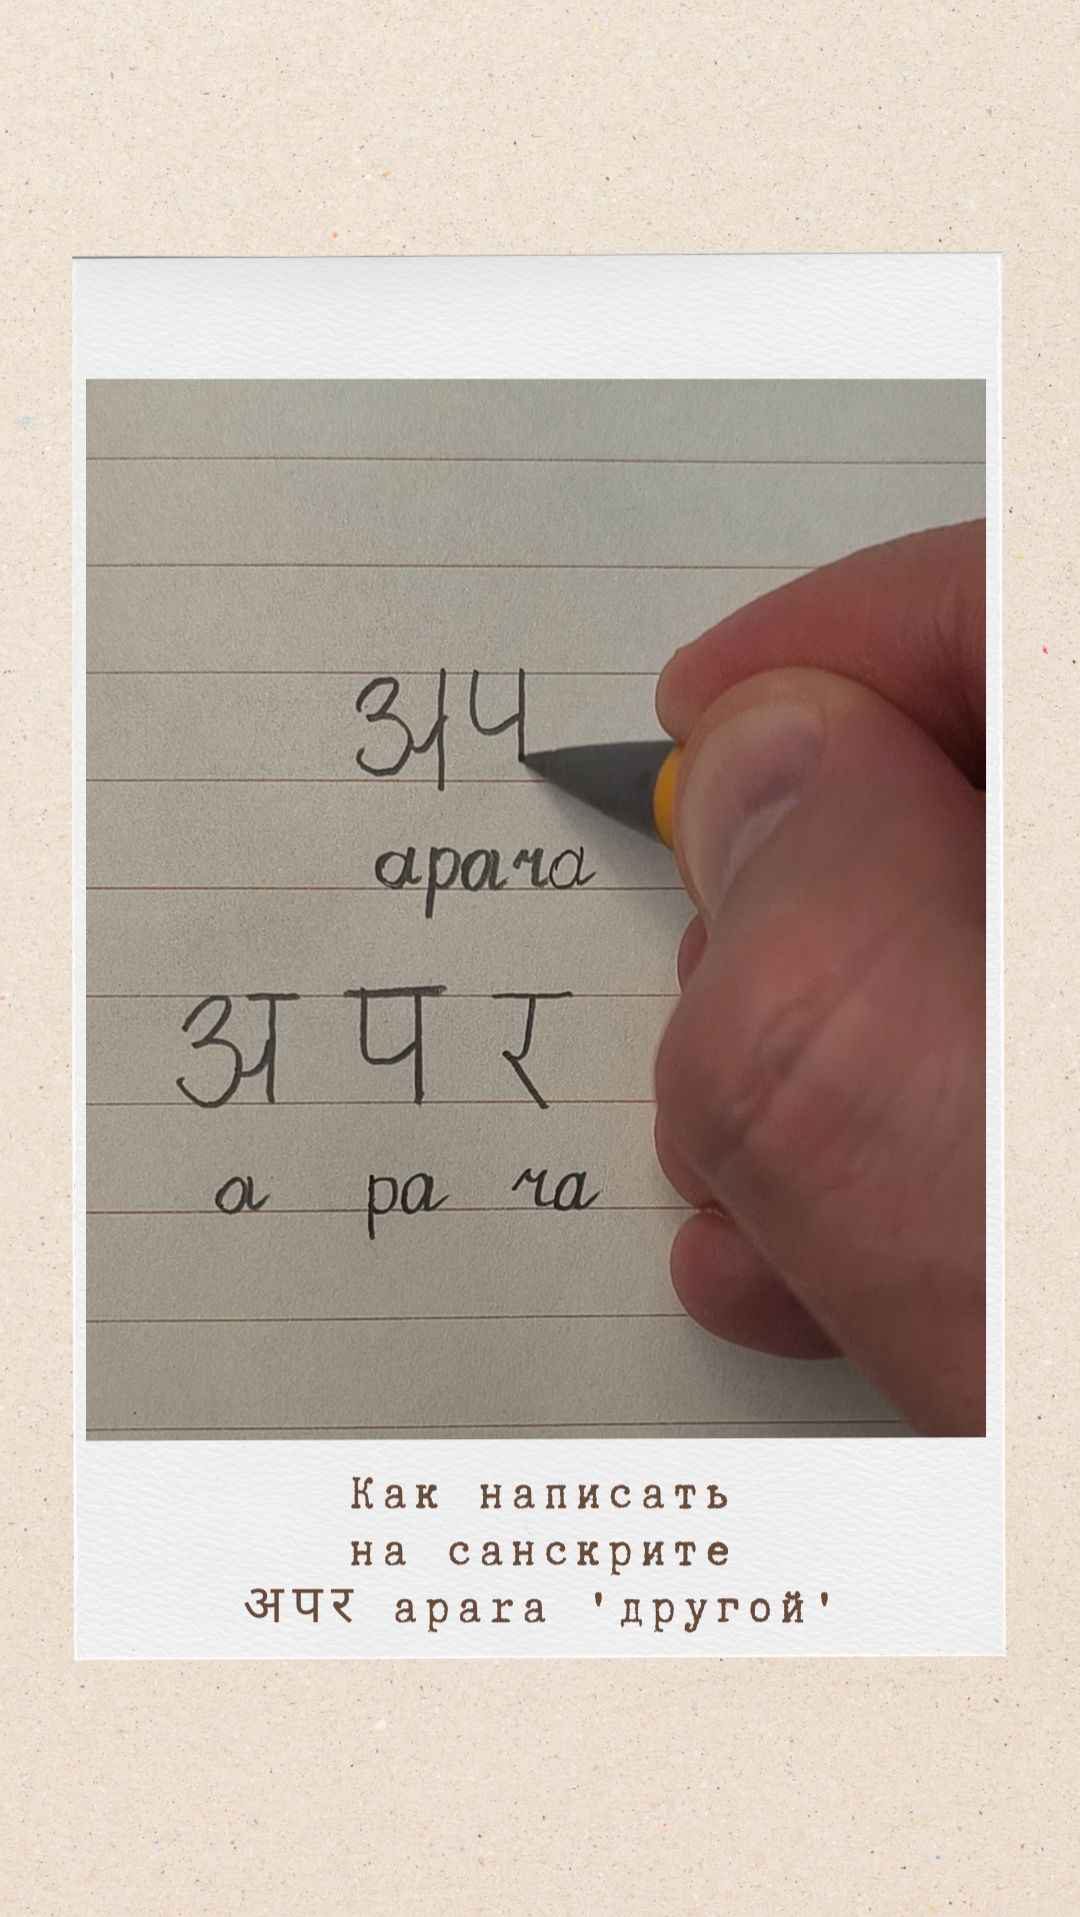 अप
apara
अ प र
a pa ra
Как написать
на санскрите
अपर apara 'другой'